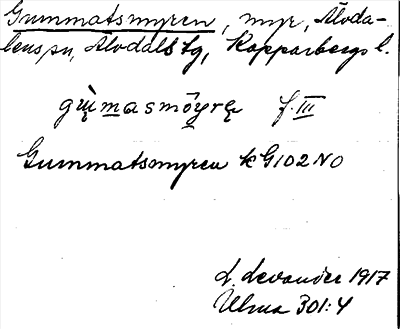 Gummatsmyren, myr, Älvda-
lens sn, Älvdals tg, Kopparbergs l.
gu̯i̯masmöyrę f. III
Gummatsmyren k G102 NO
L. Levander 1917
Ulma 301:4